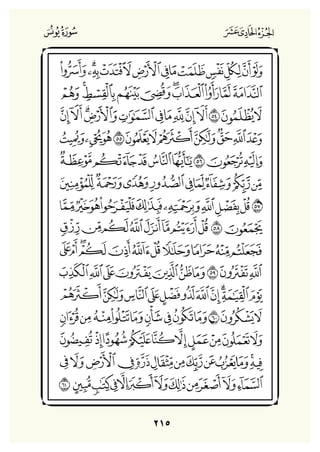 الجزء الحادي عشر سورة يونس
وَلَوْ أَنَّ لِكُلِّ نَفْسٍ ظَلَمَتْ مَا فِي الْأَرْضِ لَافْتَدَتْ بِهِ ۗ وَأَسَرُّوا
النَّدَامَةَ لَمَّا رَأَوُا الْعَذَابَ ۖ وَقُضِيَ بَيْنَهُم بِالْقِسْطِ ۚ وَهُمْ
لَا يُظْلَمُونَ ٥٤ أَلَا إِنَّ لِلَّهِ مَا فِي السَّمَاوَاتِ وَالْأَرْضِ ۗ أَلَا إِنَّ
وَعْدَ اللَّهِ حَقٌّ وَلَٰكِنَّ أَكْثَرَهُمْ لَا يَعْلَمُونَ ٥٥ هُوَ يُحْيِي وَيُمِيتُ
وَإِلَيْهِ تُرْجَعُونَ ٥٦ يَا أَيُّهَا النَّاسُ قَدْ جَاءَتْكُم مَّوْعِظَةٌ
مِّن رَّبِّكُمْ وَشِفَاءٌ لِّمَا فِي الصُّدُورِ وَهُدًى وَرَحْمَةٌ لِّلْمُؤْمِنِينَ
٥٧ قُلْ بِفَضْلِ اللَّهِ وَبِرَحْمَتِهِ فَبِذَٰلِكَ فَلْيَفْرَحُوا هُوَ خَيْرٌ مِّمَّا
يَجْمَعُونَ ٥٨ قُلْ أَرَأَيْتُم مَّا أَنزَلَ اللَّهُ لَكُم مِّن رِّزْقٍ
فَجَعَلْتُم مِّنْهُ حَرَامًا وَحَلَالًا قُلْ آللَّهُ أَذِنَ لَكُمْ ۖ أَمْ عَلَى
اللَّهِ تَفْتَرُونَ ٥٩ وَمَا ظَنُّ الَّذِينَ يَفْتَرُونَ عَلَى اللَّهِ الْكَذِبَ
يَوْمَ الْقِيَامَةِ ۗ إِنَّ اللَّهَ لَذُو فَضْلٍ عَلَى النَّاسِ وَلَٰكِنَّ أَكْثَرَهُمْ
لَا يَشْكُرُونَ ٦٠ وَمَا تَكُونُ فِي شَأْنٍ وَمَا تَتْلُو مِنْهُ مِن قُرْآنٍ
وَلَا تَعْمَلُونَ مِنْ عَمَلٍ إِلَّا كُنَّا عَلَيْكُمْ شُهُودًا إِذْ تُفِيضُونَ
فِيهِ ۚ وَمَا يَعْزُبُ عَن رَّبِّكَ مِن مِّثْقَالِ ذَرَّةٍ فِي الْأَرْضِ وَلَا فِي
السَّمَاءِ وَلَا أَصْغَرَ مِن ذَٰلِكَ وَلَا أَكْبَرَ إِلَّا فِي كِتَابٍ مُّبِينٍ ٦١
٢١٥